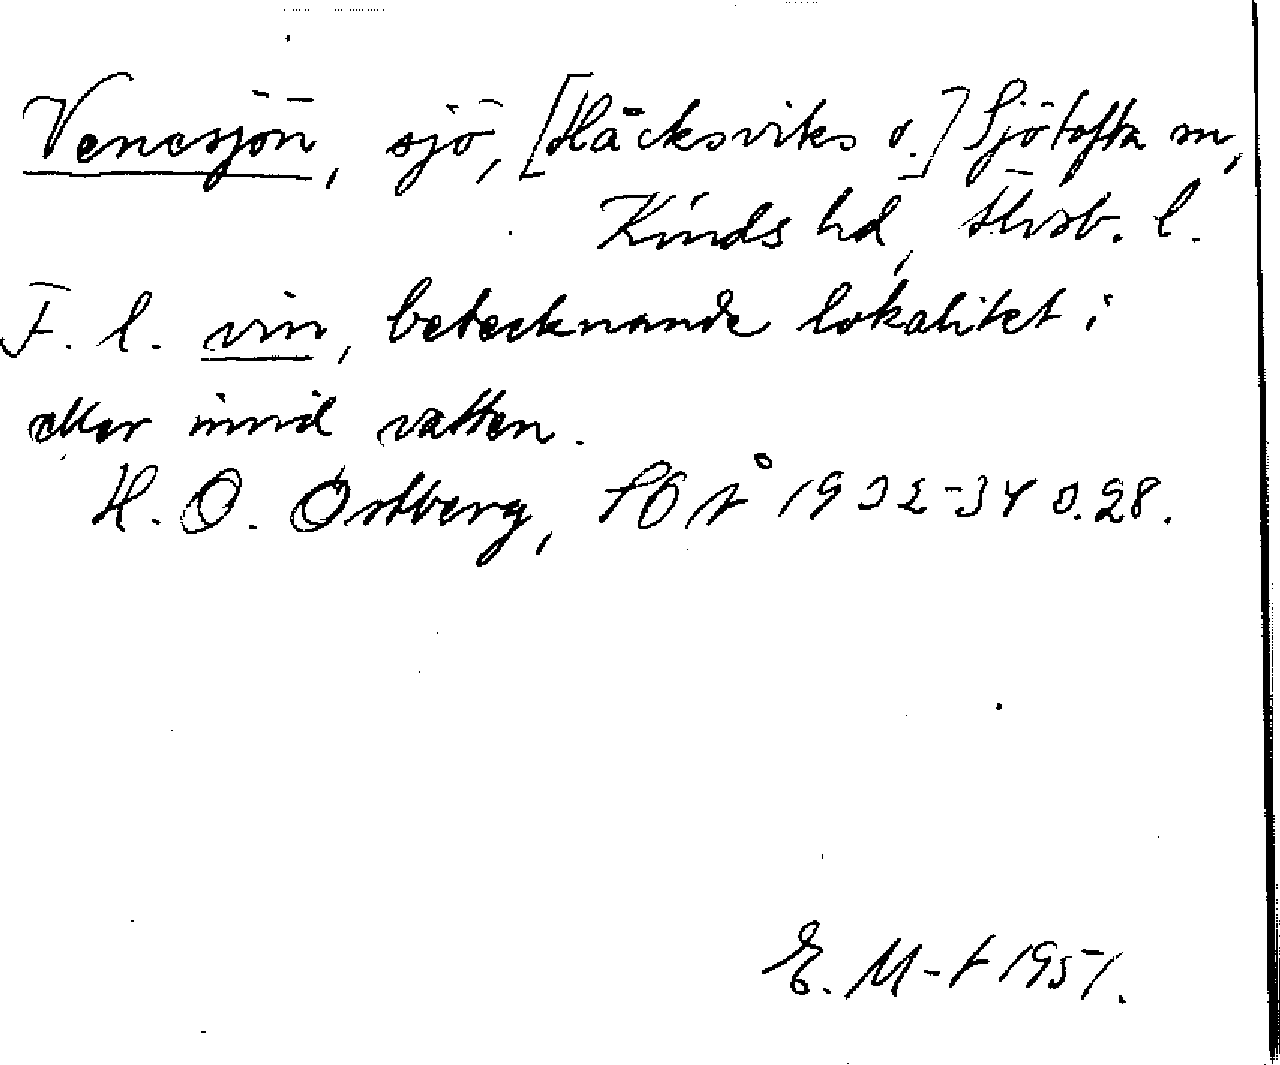 Venesjön, sjö, [Häcksviks o.] Sjötofta sn,
Kinds hd, Älvsb. l.
F. l. vin, betecknande lokalitet i
eller invid vatten.
H. O. Östberg, SOÅ 1932-34 s. 28.
E. M-t 1951.